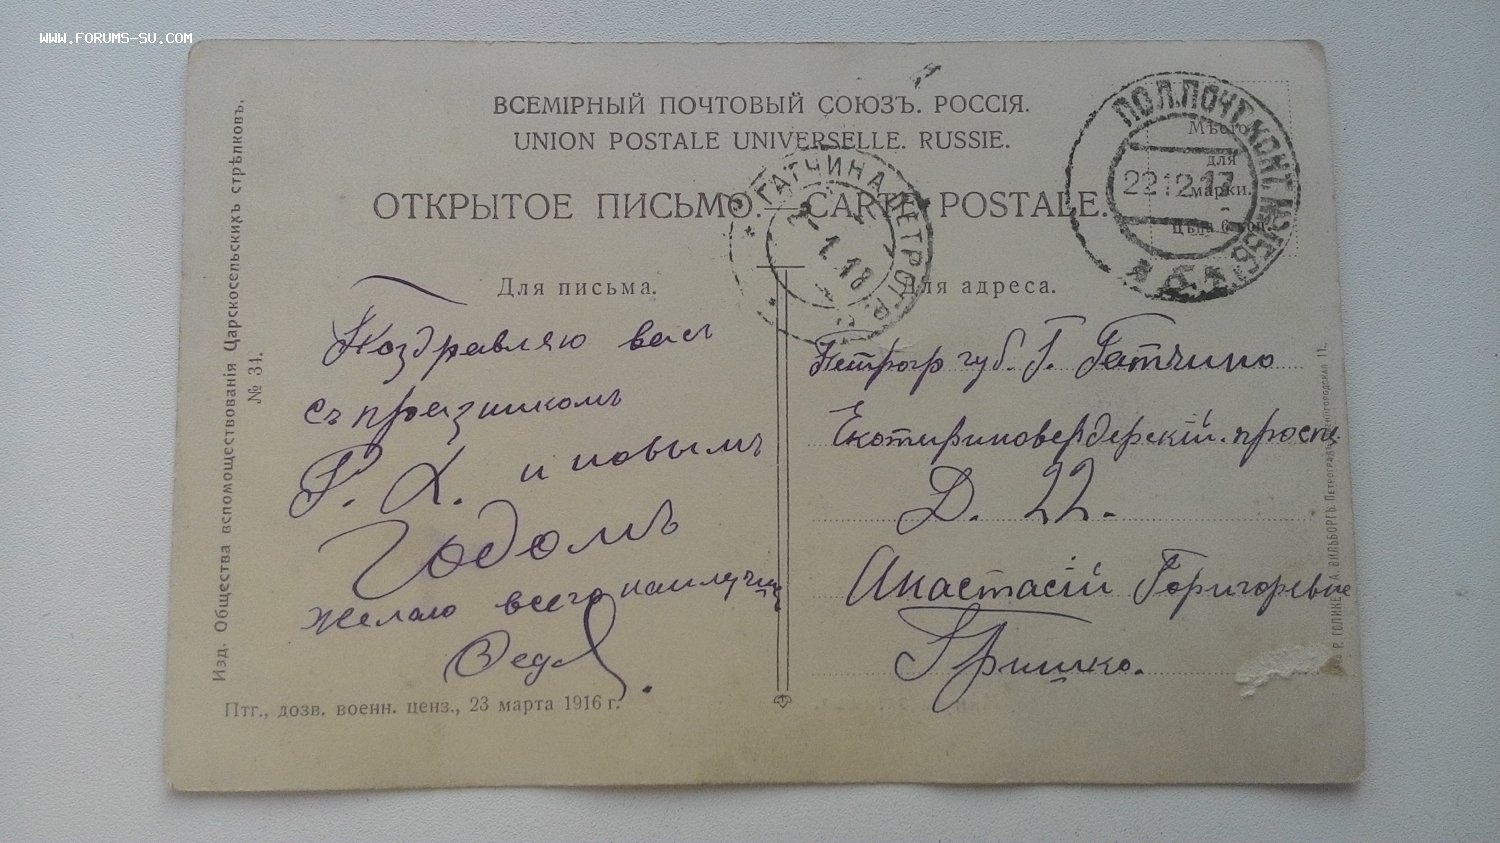 WWW.FORUMS-SU.COM
ВСЕМІРНЫЙ ПОЧТОВЫЙ СОЮЗЪ. РОССІЯ.
UNION POSTALE UNIVERSELLE. RUSSIE.
ОТКРЫТОЕ ПИСЬМО.—CARTE POSTALE.
ПОЛ.ПОЧТ.КОНТ. №156
22 12 17
Мѣсто
для
марки.
Цѣна 6 коп.
ГАТЧИНА ПЕТРОГР.
1.18
Для письма.
Поздравляю васъ
съ празникомъ
Р. Х. и новымъ
Годомъ
желаю всего наилучш
Для адреса.
Петрогр губ. Г. Гатчино
Екотириновердерскій. проспе
Д. 22.
Анастасіи Горигоревне
Гришко.
Изд. Общества вспомоществованія Царскосельскихъ стрѣлковъ.
№ 34.
Птг., дозв. военн. ценз., 23 марта 1916 г.
Р. ГОЛИКЕ и А. ВИЛЬБОРГЪ. ПЕТРОГРАДЪ, ЗВЕНИГОРОДСКАЯ 11.